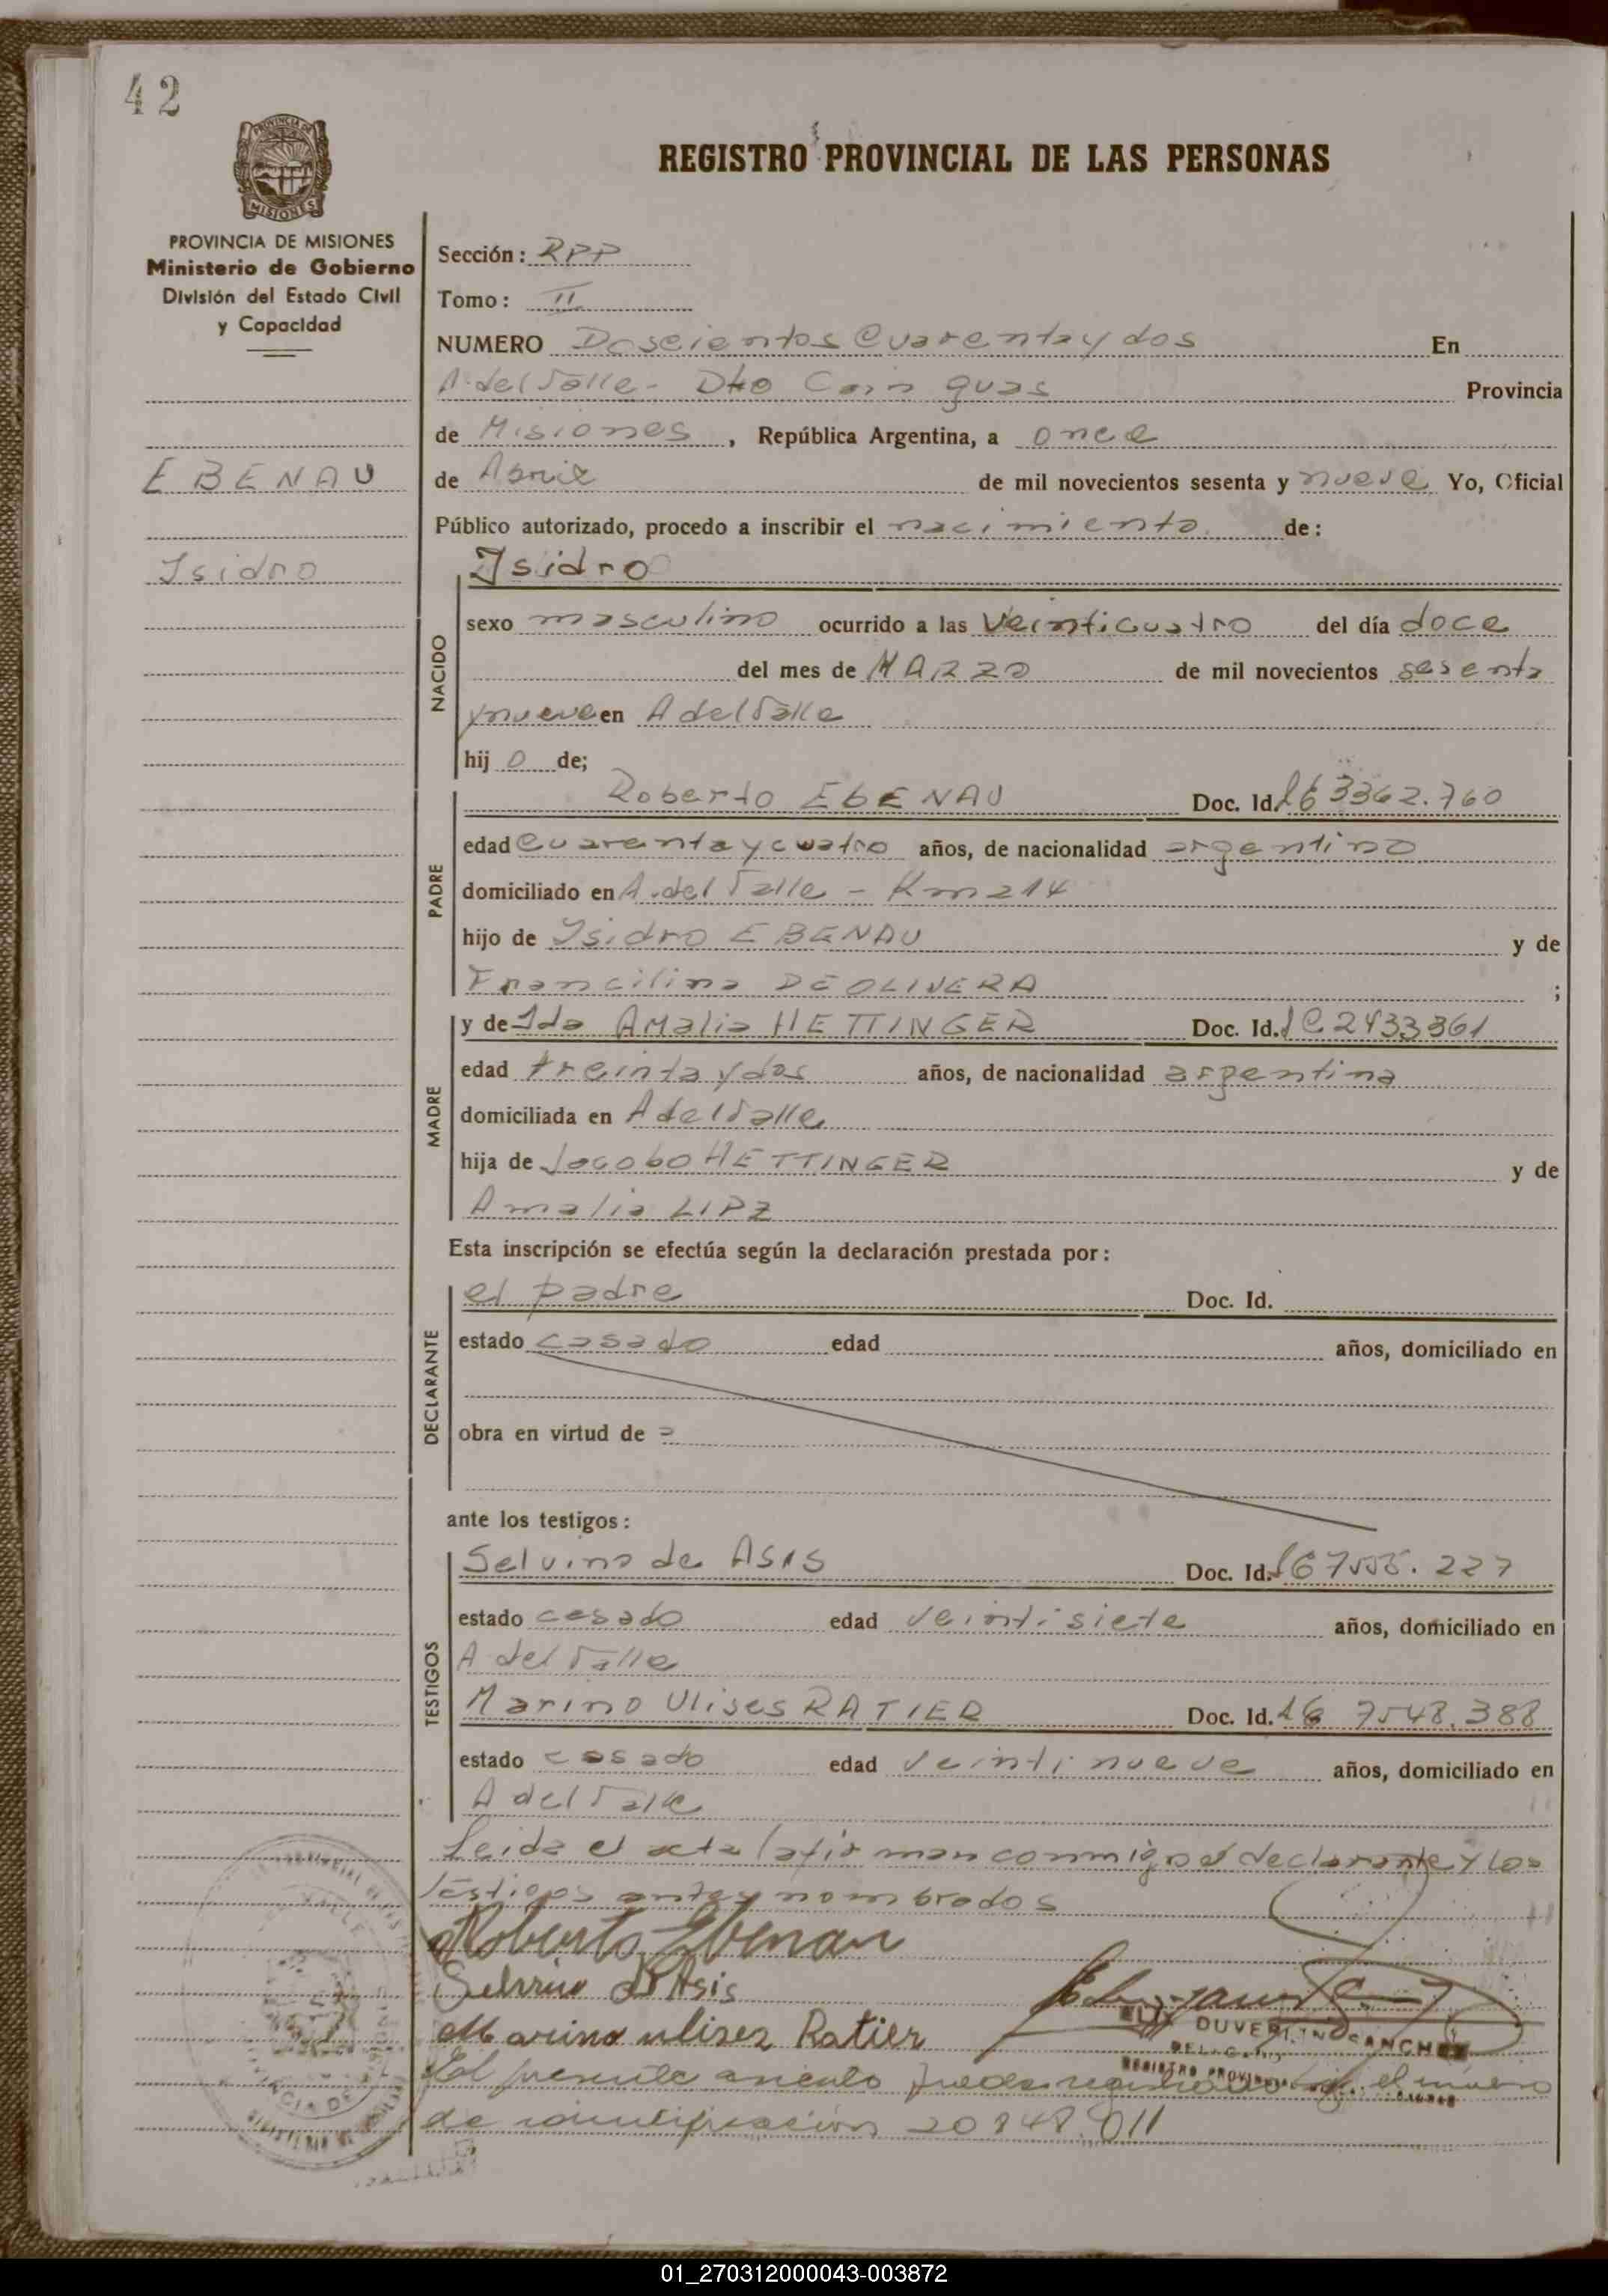 42
PROVINCIA DE
MISIONES
REGISTRO PROVINCIAL DE LAS PERSONAS
PROVINCIA DE MISIONES
Ministerio de Gobierno
División del Estado Civil
y Capacidad
EBENAU
Isidro
Sección: RPP
Tomo: II
NUMERO Doscientos Cuarenta y dos En
A. del Valle - Dto Cain guas Provincia
de Misiones, República Argentina, a once
de Abril de mil novecientos sesenta y nueve Yo, Oficial
Público autorizado, procedo a inscribir el nacimiento. de:
NACIDO
Isidro
sexo masculino ocurrido a las Veinticuatro del día doce
del mes de MARZO de mil novecientos sesenta
y nueve en A del Valle
hij o de;
PADRE
Roberto EBENAU Doc. Id. 3362.760
edad Cuarenta y cuatro años, de nacionalidad argentino
domiciliado en A. del Valle - Km 214
hijo de Isidro EBENAU y de
Francilina DE OLIVERA ;
MADRE
y de Ida AMalia HETTINGER Doc. Id. LC 2433861
edad treinta y dos años, de nacionalidad argentina
domiciliada en A del Valle
hija de Jacobo HETTINGER y de
Amalia LIPZ
Esta inscripción se efectúa según la declaración prestada por:
DECLARANTE
el padre Doc. Id.
estado casado edad años, domiciliado en
obra en virtud de =
ante los testigos:
TESTIGOS
Selvino de ASIS Doc. Id. 227
estado casado edad veintisiete años, domiciliado en
A del Valle
Marino Ulises RATIER Doc. Id. 7548.388
estado casado edad veintinueve años, domiciliado en
A del Valle
Leida el acta la firman conmigo el declarante y los
testigos antes nombrados
Roberto Ebenau
Selvino d Asis
Marino ulises Ratier
DUVERLINO SANCHEZ
DELEGADO
REGISTRO PROVINCIAL
El presente asiento queda registrado el número
de identificación 20848.011
01_270312000043-003872